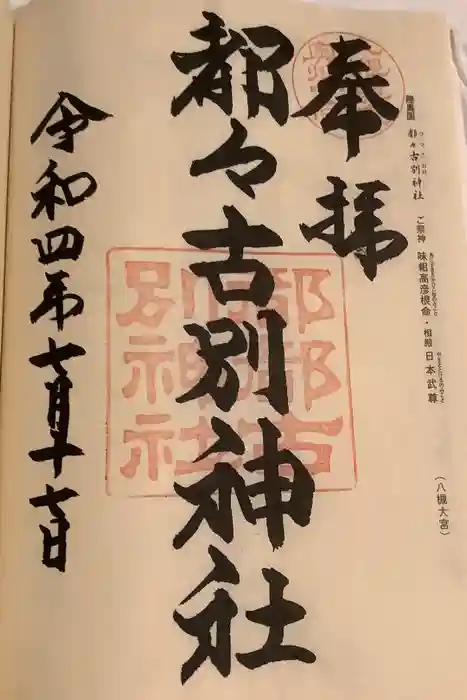 陸奥国 都々古別神社 ご祭神 味耜高彦根命・相殿 日本武尊
(八槻大宮)
奉拝
都々古別神社
都都古別神社
令和四年七月十七日